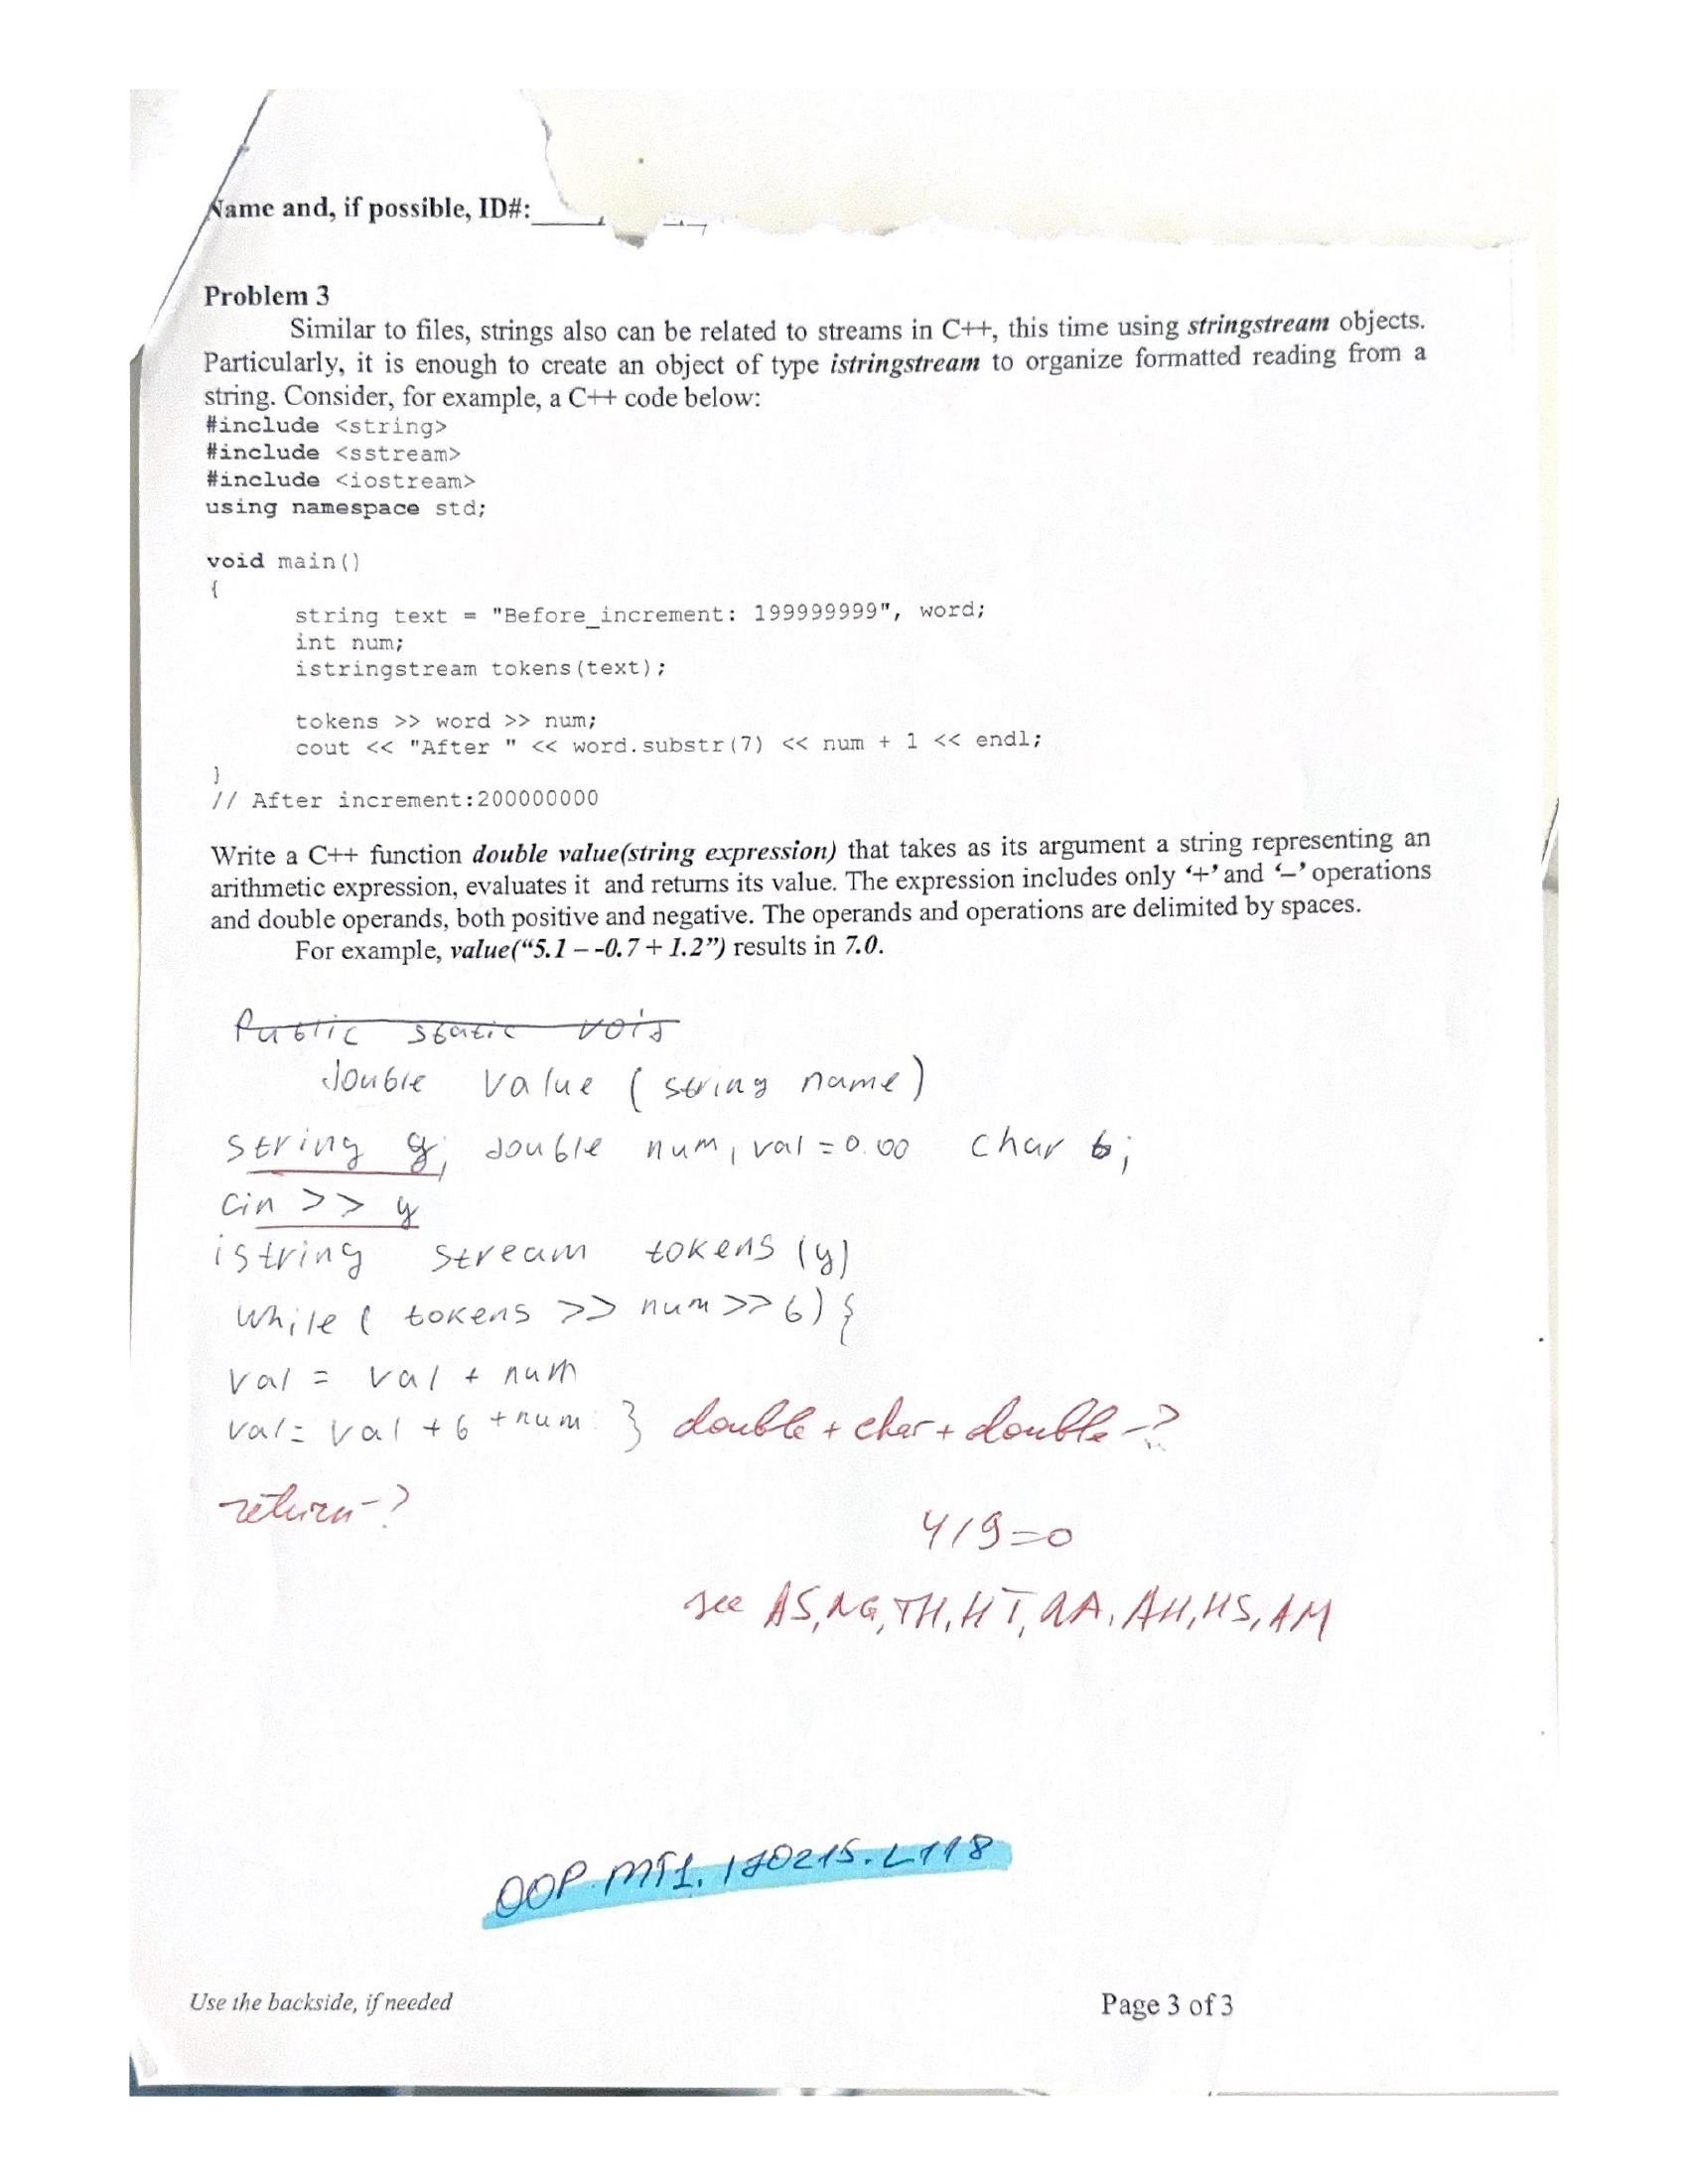 Name and, if possible, ID#:
Problem 3
Similar to files, strings also can be related to streams in C++, this time using stringstream objects.
Particularly, it is enough to create an object of type istringstream to organize formatted reading from a
string. Consider, for example, a C++ code below:
#include <string>
#include <sstream>
#include <iostream>
using namespace std;
void main()
{
string text = "Before_increment: 199999999", word;
int num;
istringstream tokens(text);
tokens >> word >> num;
cout << "After " << word.substr(7) << num + 1 << endl;
}
// After increment:200000000
Write a C++ function double value(string expression) that takes as its argument a string representing an
arithmetic expression, evaluates it and returns its value. The expression includes only ‘+’ and ‘–’ operations
and double operands, both positive and negative. The operands and operations are delimited by spaces.
For example, value(“5.1 – -0.7 + 1.2”) results in 7.0.
Public static void
double value ( string name)
string y; double num, val = 0.00 char b;
cin >> y
istring stream tokens (y)
while ( tokens >> num >> b) {
val = val + num
val = val + b + num }
double + char + double - ?
return - ?
4/9=0
see AS, NG, TH, HT, AA, AH, HS, AM
OOP.MT1.170215.L118
Use the backside, if needed
Page 3 of 3